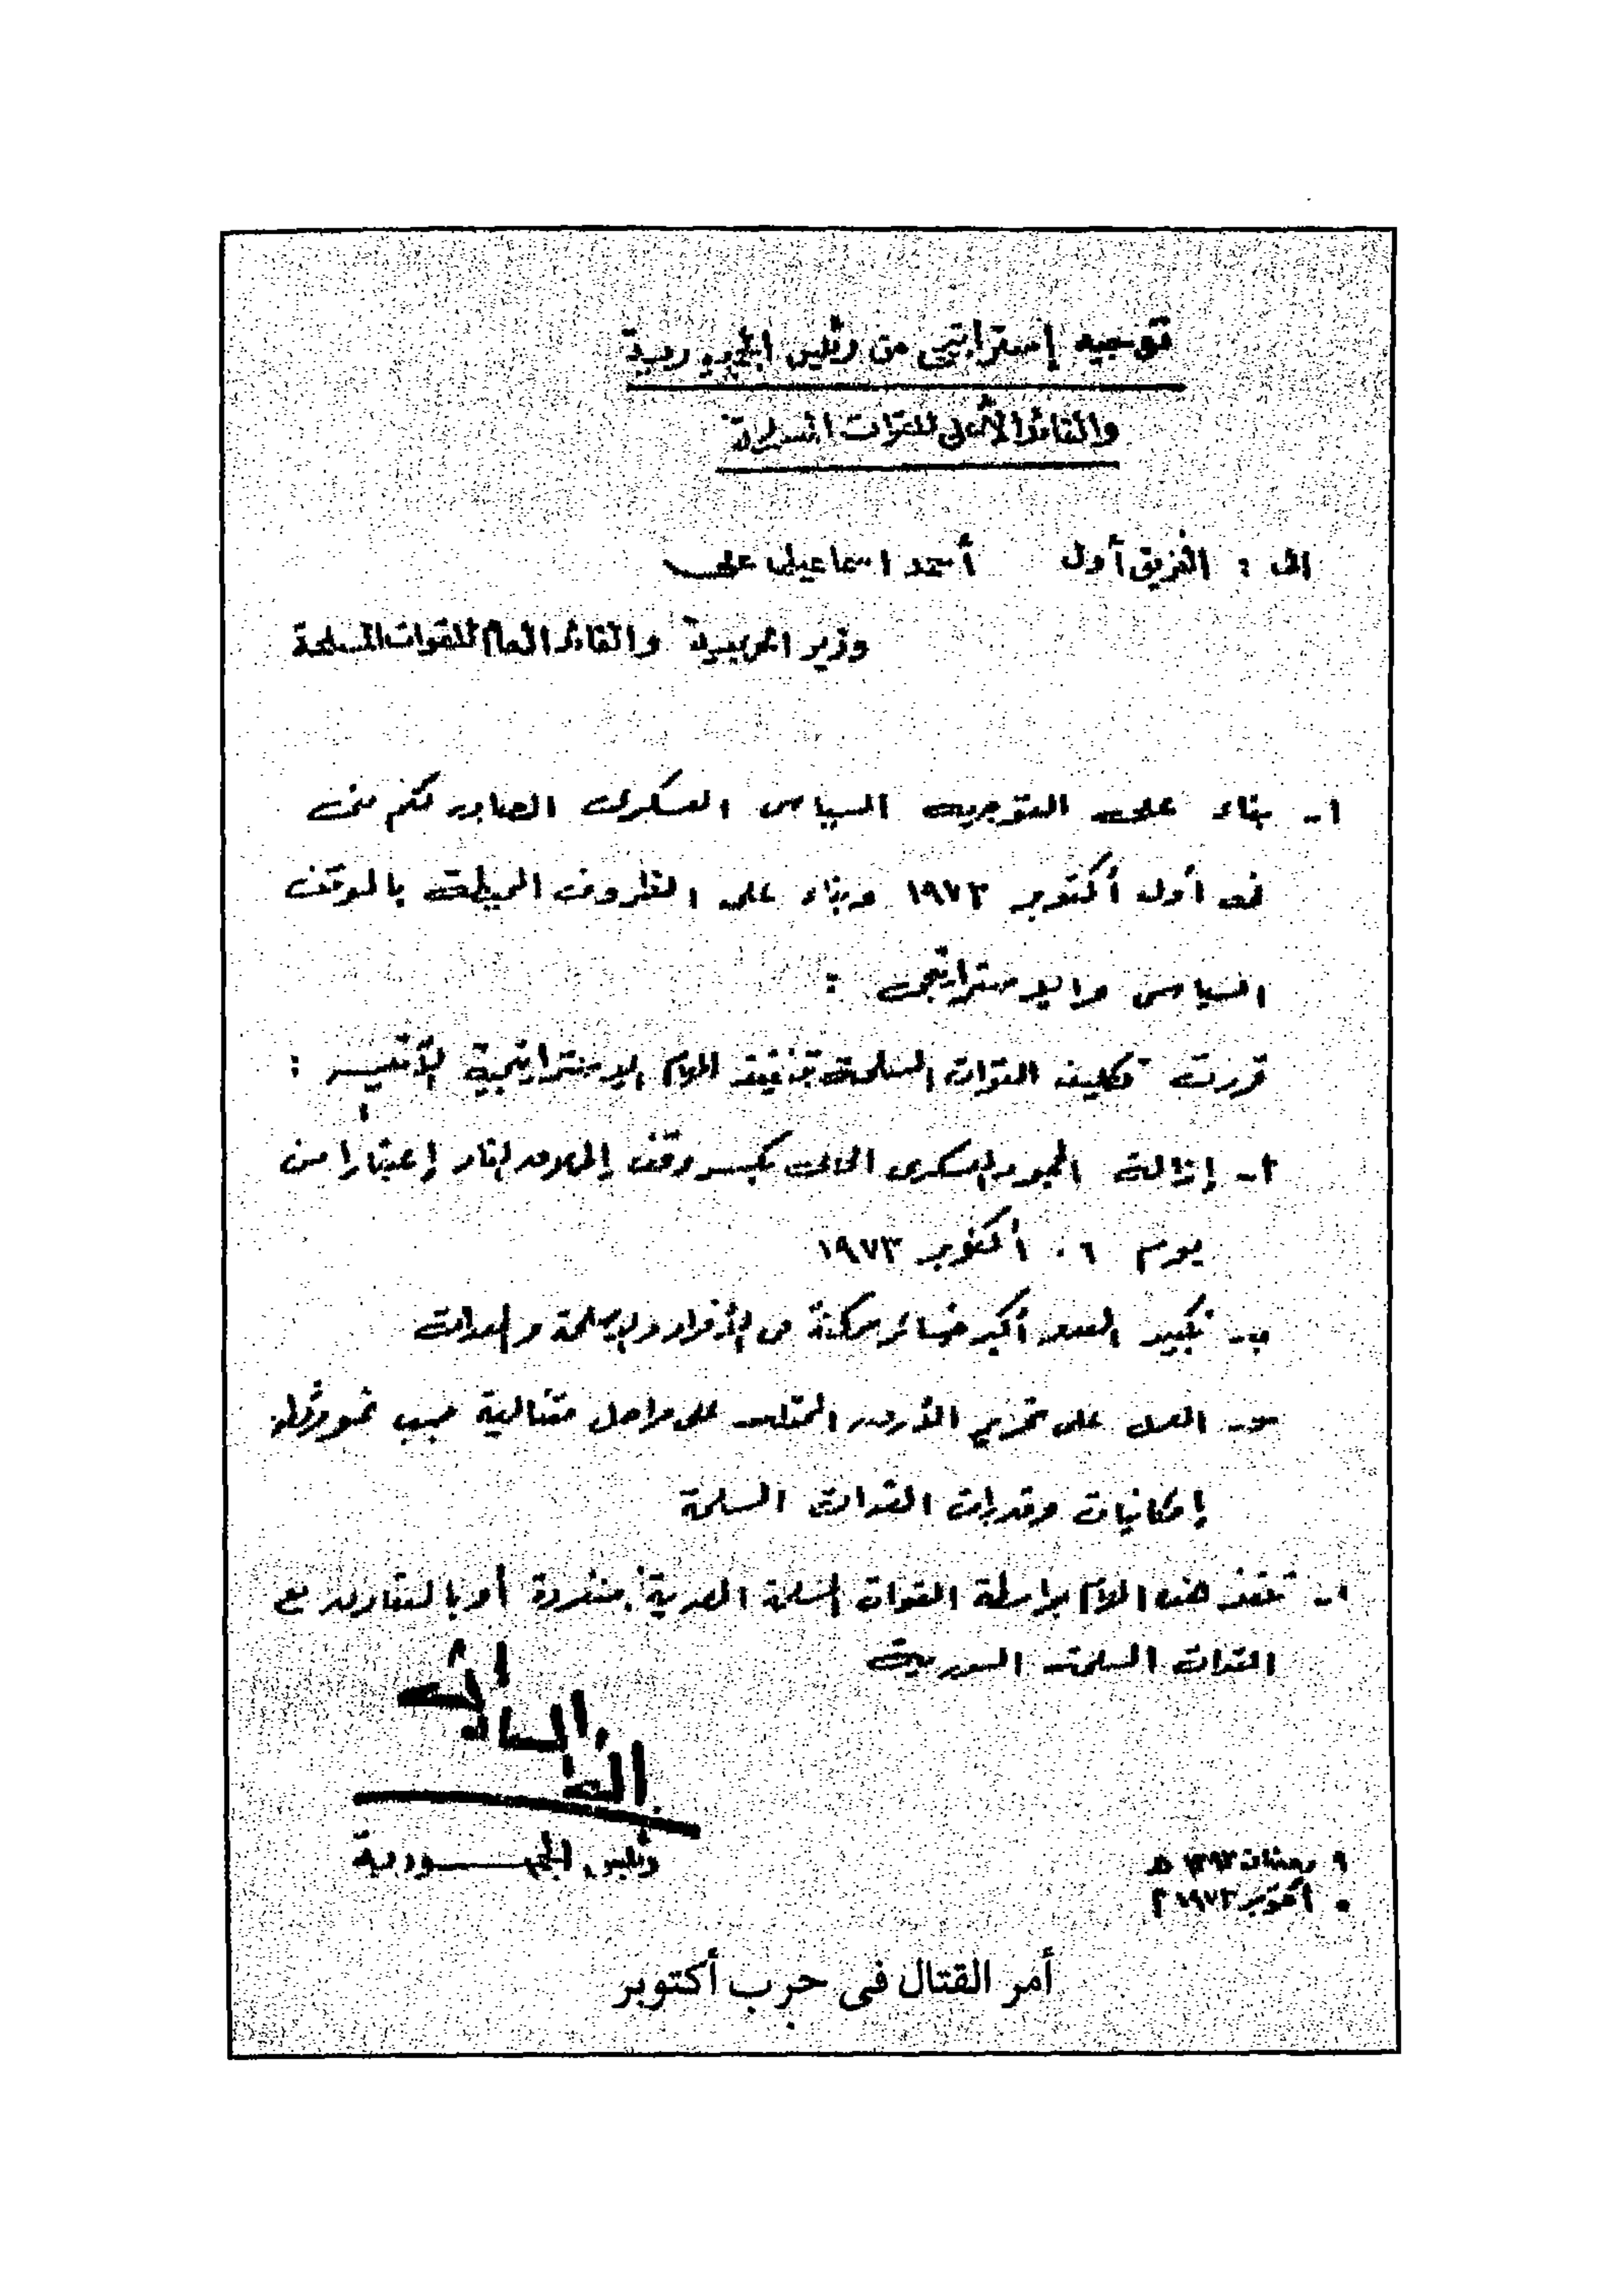 توجيه إستراتيجى من رئيس الجمهورية
والقائد الأعلى للقوات المسلحة
الى : الفريق أول أحمد اسماعيل على
وزير الحربية والقائد العام للقوات المسلحة
١ـ بناء على التوجيه السياسى العسكرى الصادر لكم منى
فى أول أكتوبر ١٩٧٣ وبناء على الظروف المحيطة بالموقف
السياسى والاستراتيجى :
قررت تكليف القوات المسلحة بتنفيذ المهام الاستراتيجية الآتيـــة :
أ ـ إزالة الجمود العسكرى الحالى بكسر وقف إطلاق النار إعتبارا من
يوم ٦ أكتوبر ١٩٧٣
ب ـ تكبيد العدو أكبر خسائر ممكنة فى الأفراد والأسلحة والمعدات
حـ ـ العمل على تحرير الأرض المحتلة على مراحل متتالية حسب نمو وتطور
إمكانيات وقدرات القوات المسلحة
ـ تنفذ هذه المهام بواسطة القوات المسلحة المصرية منفردة أو بالتعاون مع
القوات المسلحة السورية
رئيس الجمهـــورية
٩ رمضان ١٣٩٣ هـ
٥ أكتوبر ١٩٧٣ م
أمر القتال فى حرب أكتوبر